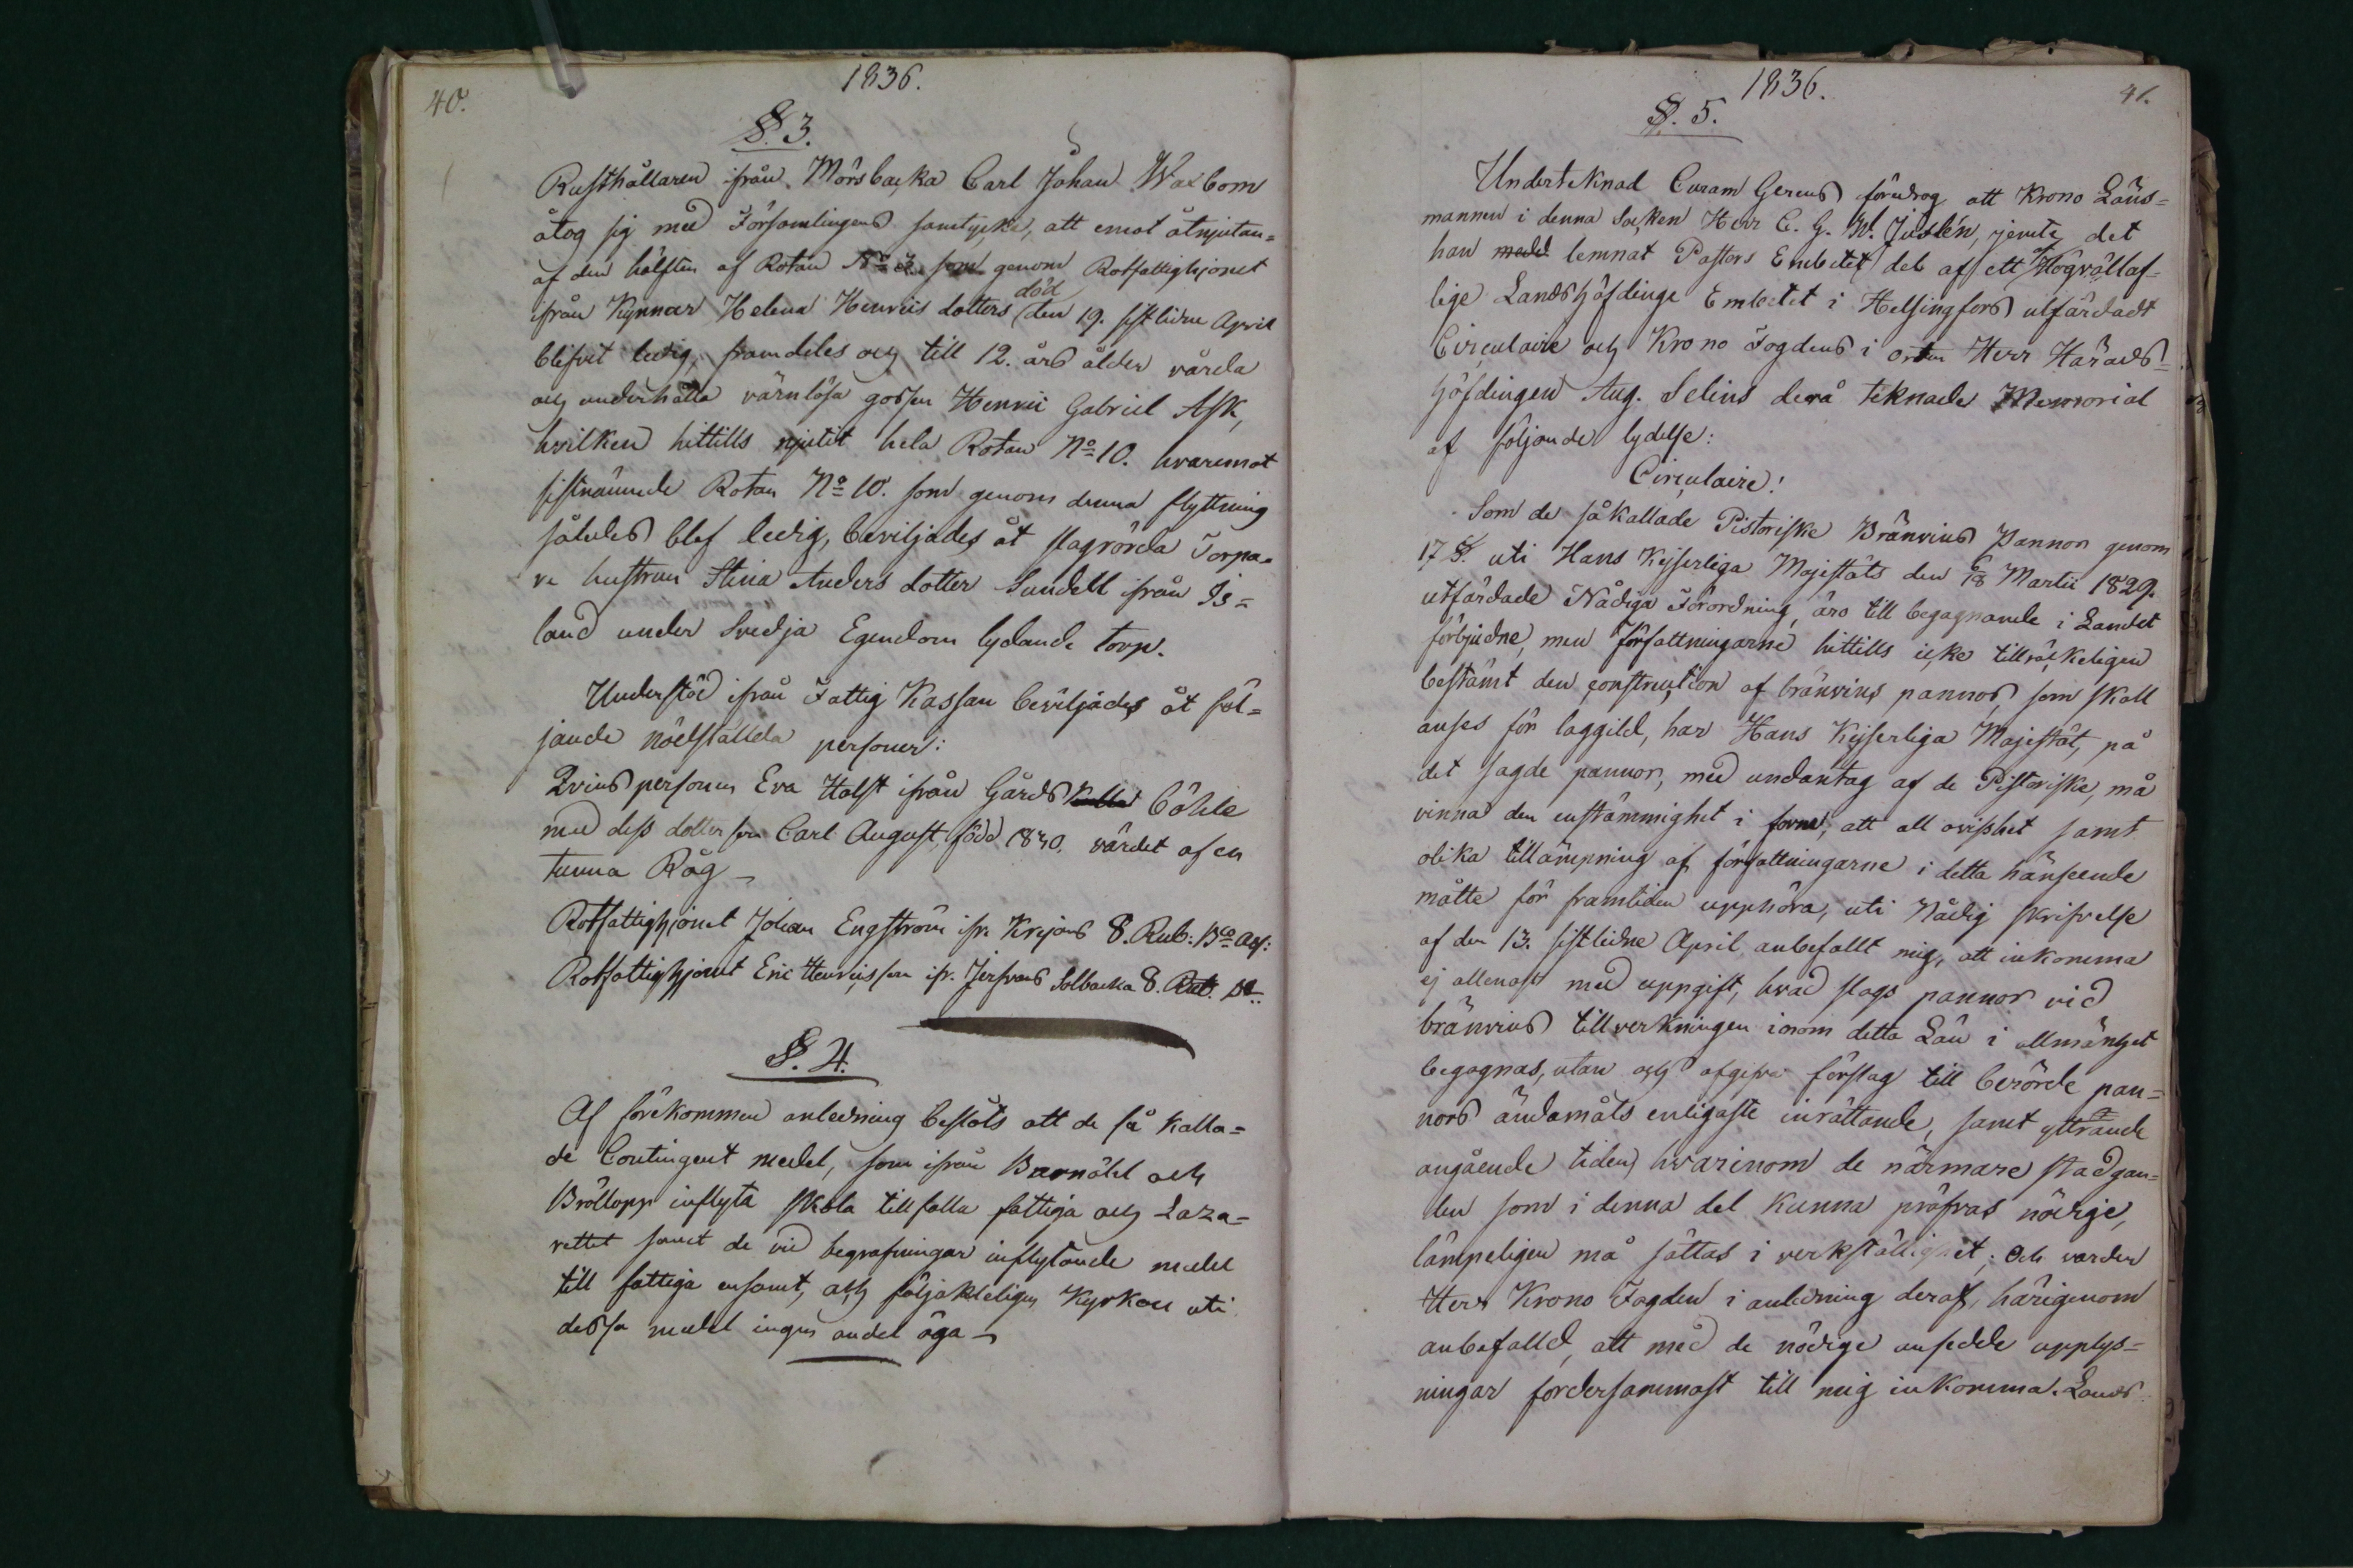 1836.
40.
§. 3.
Rusthållaren ifrån Mörsbacka Carl Johan Waxbom
åtog sig med Församlingens samtycke, att emot åtnjutan=
af den hälften af Rotan No 3. som genom Rotfattighjonet
ifrån Kynnar Helena Henricsdotters död den 19. sistlidne April
blifvit ledig, framdeles och till 12. års ålder vårda
och underhålla värnlösa gossen Henric Gabriel Ask,
hvilken hittills njutit hela Rotan No 10. hvaremot
sistnämnde Rotan No 10. som genom denna flyttning
således blef ledig, beviljades åt slagrörda Torpa=
re hustrun Stina Anders dotter Sundell ifrån Is=
land under Svedja Egendom lydande torp.
Understöd ifrån Fattig Kassan beviljades åt föl=
jande nödställda personer:
Qvinspersonen Eva Holst ifrån Gårds Böhle
med dess dotter son Carl August, född 1830. värdet af en
tunna Råg
Rotfattighjonet Johan Engström ifr. Krejans 8. Rub: Bco Ass:
Rotfattighjonet Eric Henricsson ifr. Jerfvans Solbacka 8. Rub.
§. 4.
Af förekommen anledning beslöts att de så kalla=
de Contingent medel, som ifrån Barnöhl och
Bröllopp inflyta skola tillfalla fattiga och Laza=
rettet samt de vid begrafningar inflytande medel
till fattiga ensamt, och följakteligen Kyrkan uti
dessa medel ingen andel äga
1836.
41.
§. 5.
Undertecknad Curam Gerens föredrog att Krono Läns=
mannen i denna Socken Herr C. G. W. Juslén, jemte det
han medel lemnat Pastors Embetet del af ett af Högvällof=
lige Landshöfdinge Embetet i Helsingfors utfärdadt
Circulaire och Krono Fogdens i orten Herr Härads=
höfdingen Aug. Selins derå teknade Memorial
af följande lydelse:
Circulaire!
Som de såkallade Pistoriske Bränvins Pannor genom
17 §. uti Hans Kejserliga Majestäts den 6/18 Martii 1829.
utfärdade Nådiga Förordning, äro till begagnande i Landet
förbjudne, men författningarne hittills icke tillräckeligen
bestämt den construction af bränvins pannor, som skall
anses för laggild, har Hans Kejserliga Majestät, på
det sagde pannor, med undantag af de Pistoriske, må
vinna den enstämmighet i form, att all ovisshet samt
olika tillämpning af författningarne i detta hänseende
måtte för framtiden upphöra, uti Nådig skrifvelse
af den 13. sistlidne April anbefallt mig, att inkomma
ej allenast med uppgift, hvad slags pannor vid
bränvins tillverkningen inom detta Län i allmänhet
begagnas, utan och afgifva förslag till berörde pan=
nors ändamåls enligaste inrättande, samt yttrande
angående tiden, hvarinom de närmare stadgan=
den som i denna del kunna pröfvas nödige,
lämpeligen må sättas i verkställighet; Och varder
Herr Krono Fogden i anledning deraf, härigenom
anbefalld, att med de nödige ansedde upplys=
ningar fordersammast till mig inkomma. Lands